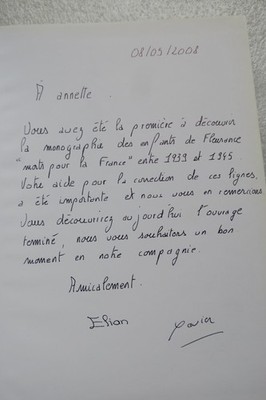 08/05/2008
À annette.
Vous avez été la première à découvrir
la monographie des enfants de Fleurance
"morts pour la France" entre 1939 et 1945.
Votre aide pour la correction de ces lignes,
a été importante et nous vous en remercions.
Vous découvrirez aujourd'hui l'ouvrage
terminé, nous vous souhaitons un bon
moment en notre compagnie.
Amicalement.
Elian